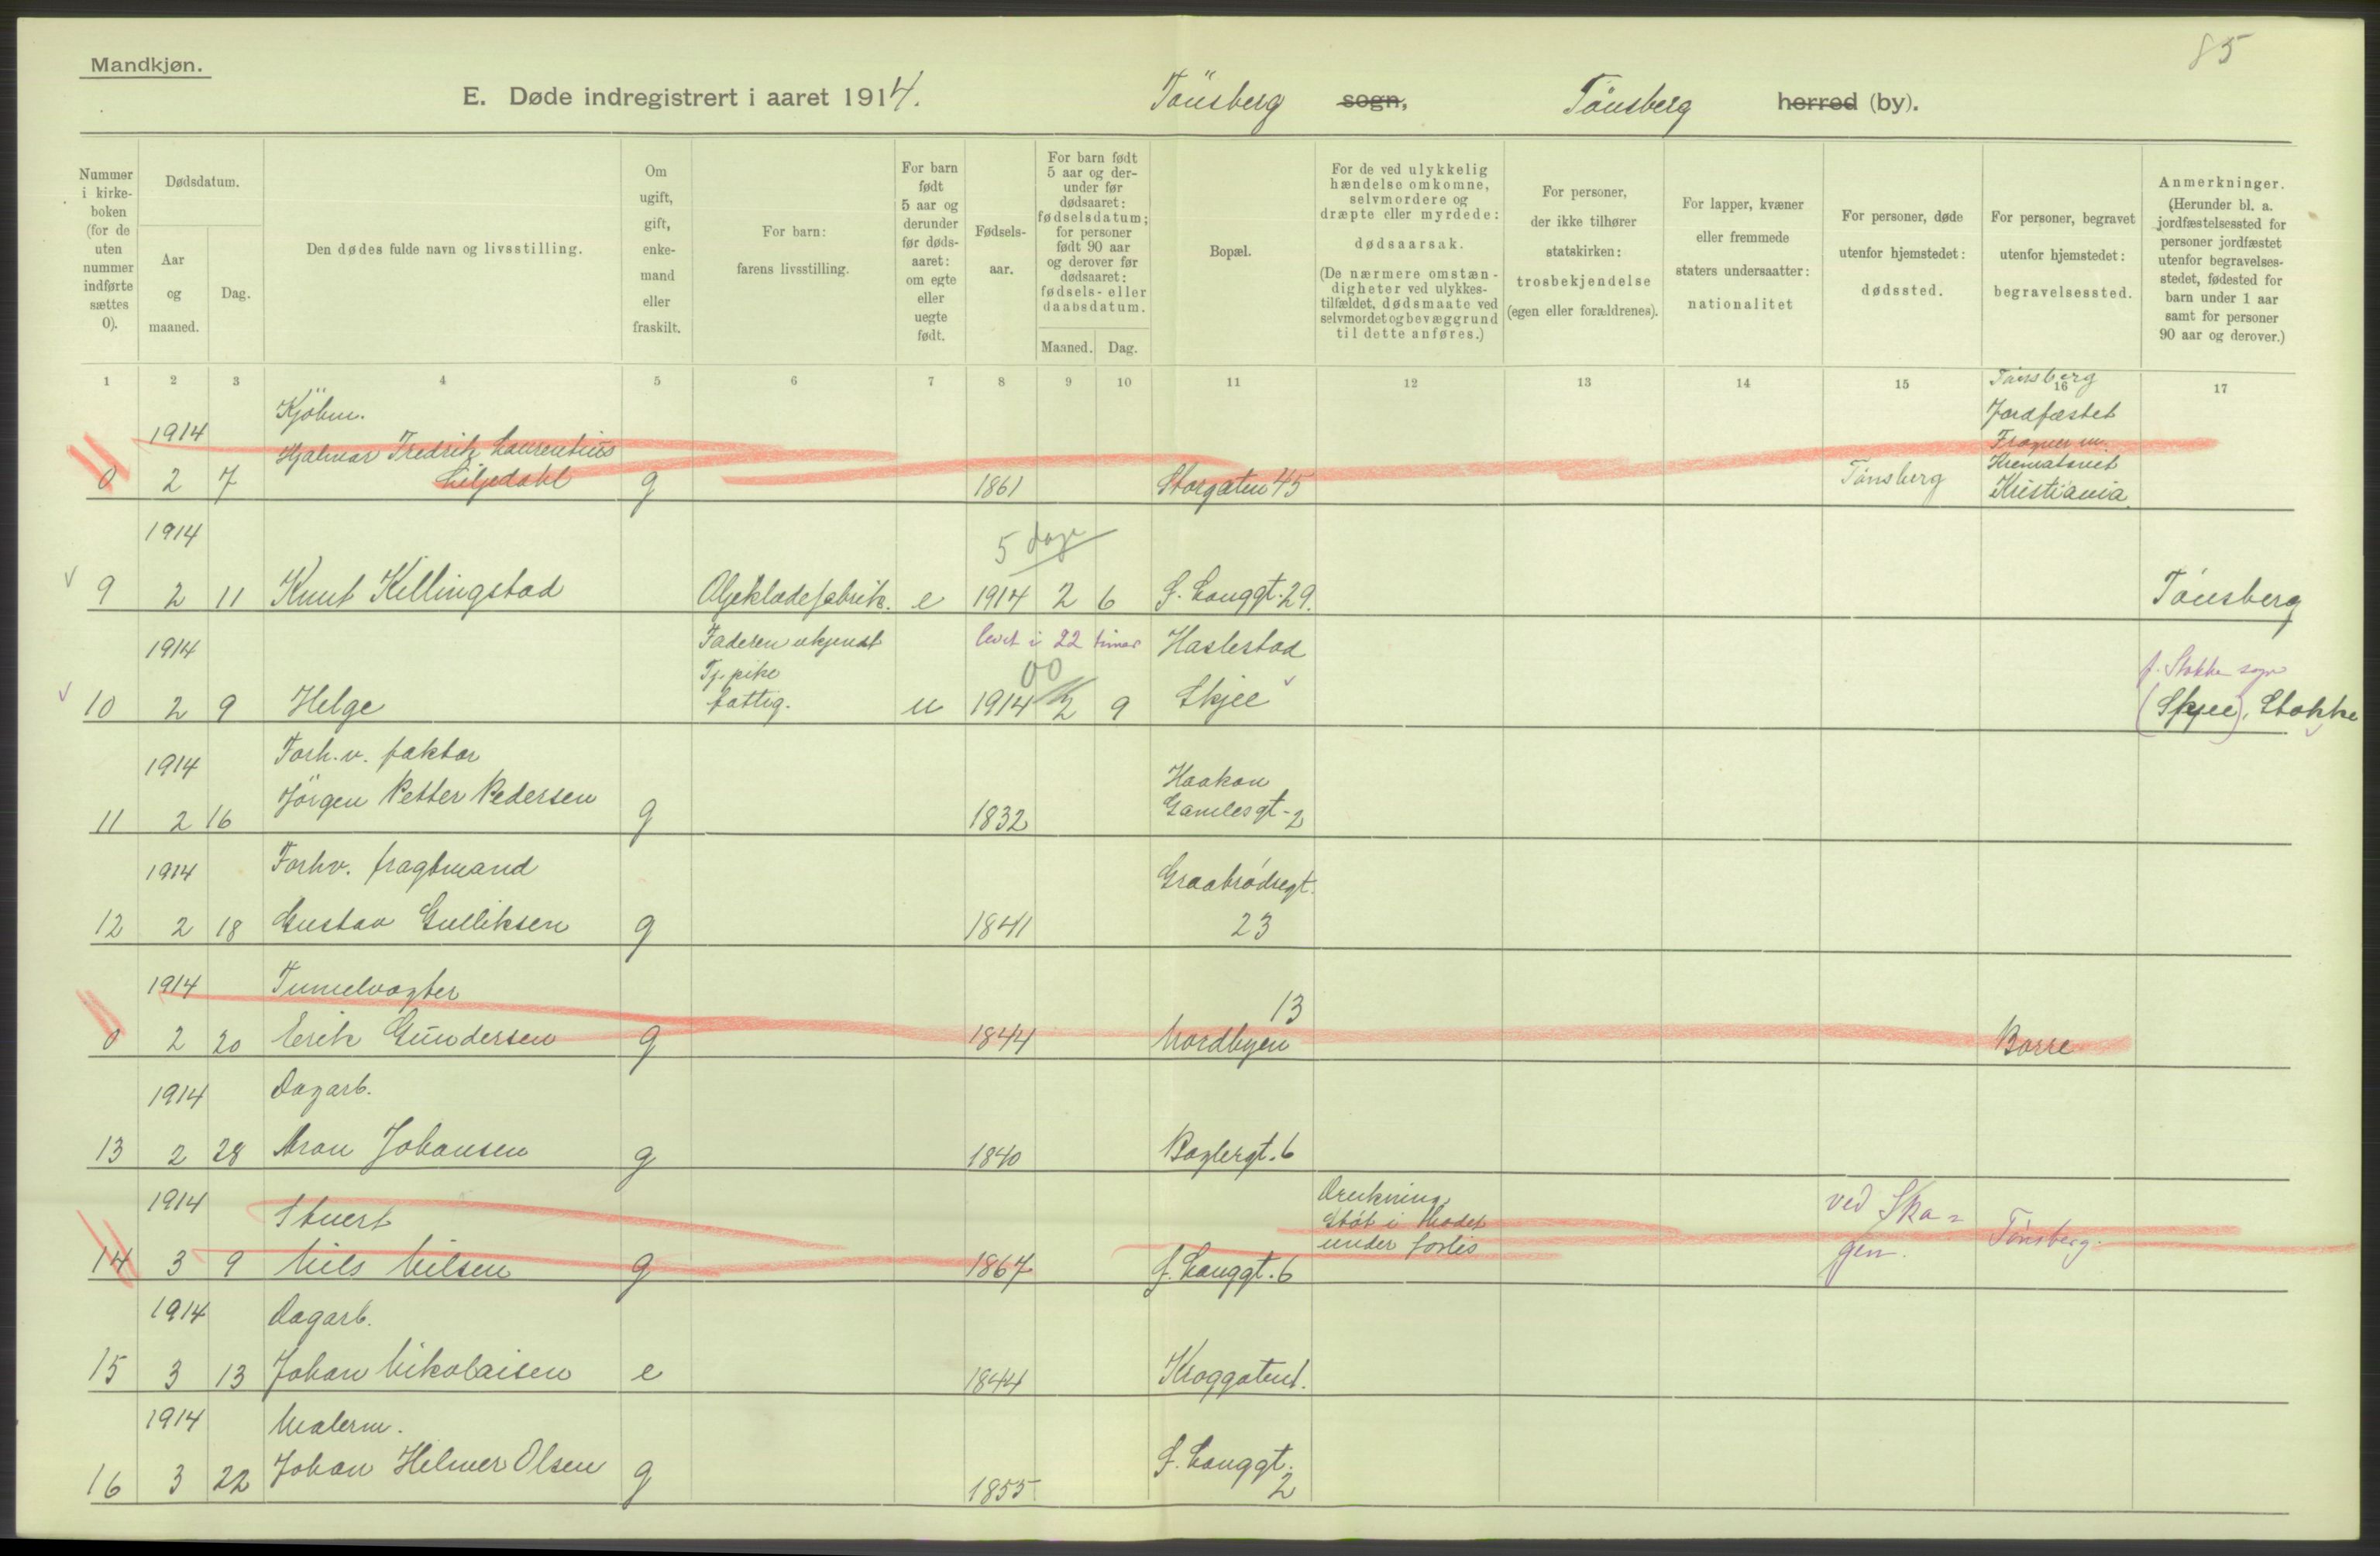 85
Mandkjøn.
E. Døde indregistrert i aaret 1914. Tönsberg sogn, Tönsberg herred (by).
Nummer i kirke-boken (for de uten nummer indførte sættes 0).
Dødsdatum.
Aar og maaned.
Dag.
Den dødes fulde navn og livsstilling.
Om ugift, gift, enke-mand eller fraskilt.
For barn: farens livsstilling.
For barn født 5 aar og derunder før døds-aaret: om egte eller uegte født.
Fødsels-aar.
For barn født 5 aar og der-under før dødsaaret: fødselsdatum; for personer født 90 aar og derover før dødsaaret: fødsels- eller daabsdatum.
Maaned. Dag.
Bopæl.
For de ved ulykkelig hændelse omkomne, selvmordere og dræpte eller myrdede: dødsaarsak. (De nærmere omstæn-digheter ved ulykkes-tilfældet, dødsmaate ved selvmordet og bevæggrund til dette anføres.)
For personer, der ikke tilhører statskirken: trosbekjendelse (egen eller forældrenes).
For lapper, kvæner eller fremmede staters undersaatter: nationalitet
For personer, døde utenfor hjemstedet: dødssted.
For personer, begravet utenfor hjemstedet: begravelsessted.
Anmerkninger. (Herunder bl. a. jordfæstelsessted for personer jordfæstet utenfor begravelses-stedet, fødested for barn under 1 aar samt for personer 90 aar og derover.)
1 2 3 4 5 6 7 8 9 10 11 12 13 14 15 16 17
1914 Kjöbm. Tönsberg
Jordfæstet
Hjalmar Fredrik Laurentius Frogner m.
Krematoriet
0 2 7 Liljedahl g 1861 Storgaten 45 Tönsberg Kristiania.
1914 5 dage
9 2 11 Knut Killingstad Oljeklædefabrik. e 1914 2 6 S. Langgt. 29. Tönsberg
1914 Faderen ukjendt levet i 22 timer Haslestad
Tj. pike 00 f. Stokke sogn
10 2 9 Helge fattig. u 1914 2 9 Skjee (Skjee), Stokke
1914 Forh. v. faktor
Haakon
11 2 16 Jörgen Petter Pedersen g 1832 Gamlesgt - 2
1914 Forhv. fragtmand Graabrödregt.
12 2 18 Gustav Gulliksen g 1841 23
1914 Tunnelvagter 13
0 2 20 Erik Gundersen g 1844 Nordbyen Borre
1914 Dagarb.
13 2 28 Aron Johansen g 1840 Baglergt. 6
1914 Stuert Drukning
Stöt i hodet ved Ska=
under forlis
14 3 9 Nils Nilsen g 1867 f. Langgt. 6 gen. Tönsberg.
1914 Dagarb.
15 3 13 Johan Nikolaisen e 1844
1914 Malerm.
16 3 22 Johan Helmer Olsen g 1855 S. Langgt. 2